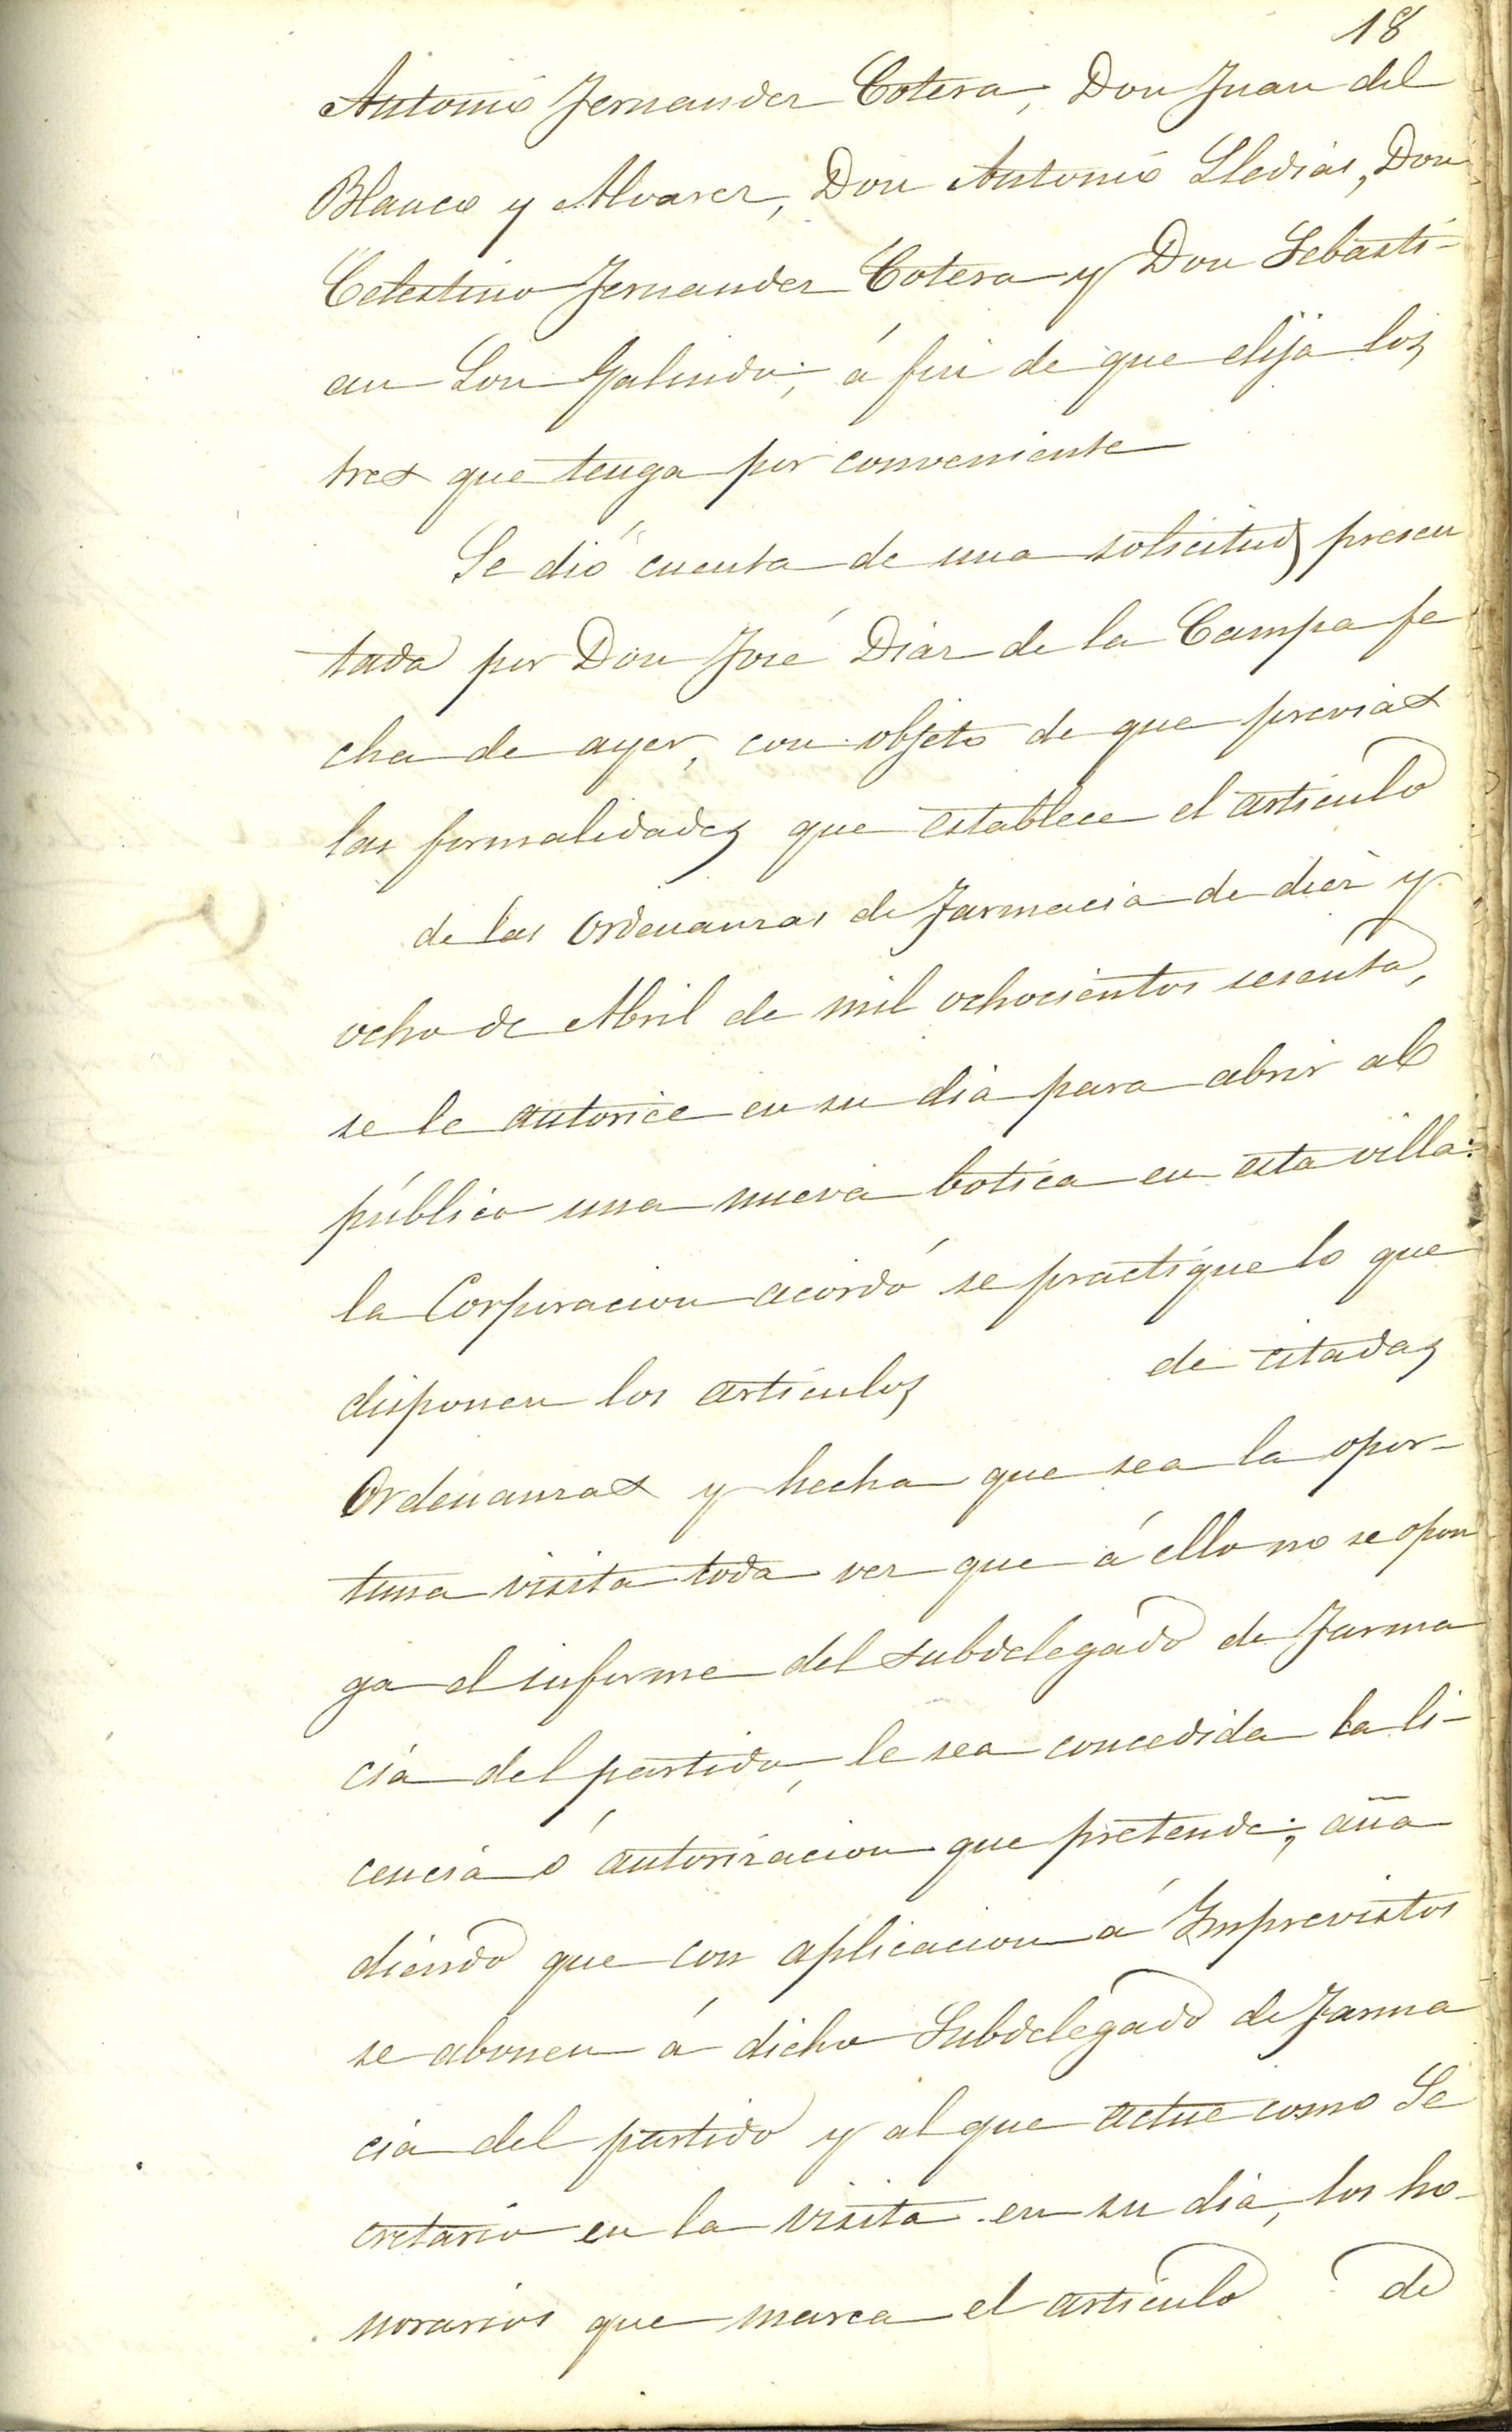 18
Antonio Fernandez Cotera, Don Juan del
Blanco y Alvarez, Don Antonio Lledias, Don
Celestino Fernandez Cotera y Don Sebasti-
an Son Galindo; á fin de que elija los
tres que tenga por conveniente
Se dió cuenta de una solicitud presen
tada por Don José Diaz de la Campa fe
cha de ayer, con objeto de que previas
las formalidades que establece el articulo
de las Ordenanzas de Farmacia de diez y
ocho de Abril de mil ochocientos sesenta,
se le autorice en su dia para abrir al
público una nueva botica en esta villa:
la Corporacion acordó se practique lo que
disponen los articulos de citadas
Ordenanzas y hecha que sea la opor-
tuna visita toda vez que á ello no se opon
ga el informe del Subdelegado de Farma
cia del partido, le sea concedida la li-
cencia ó autorizacion que pretende; aña
diendo que con aplicacion á Imprevistos
se abonen á dicho Subdelegado de Farma
cia del partido y al que actue como Se
cretario en la visita en su dia, los ho-
norarios que marca el articulo de